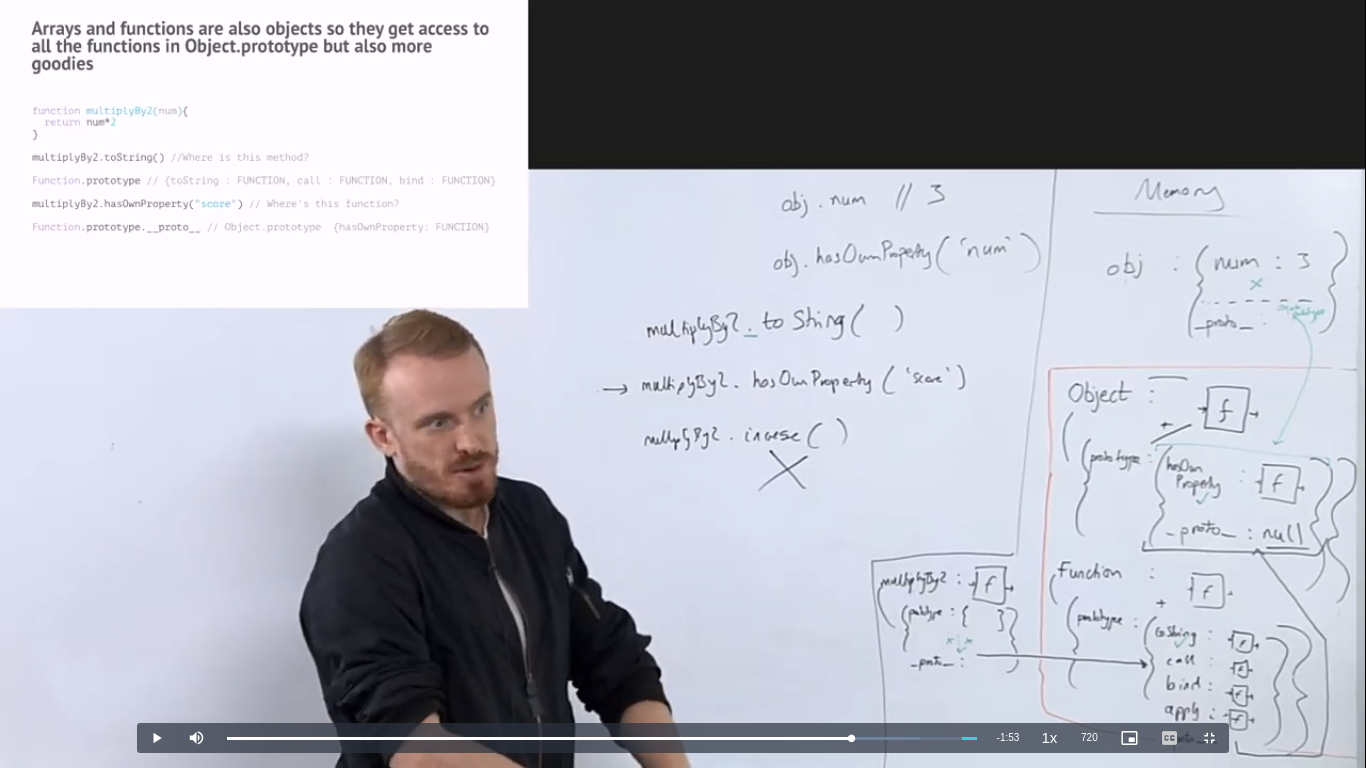 Arrays and functions are also objects so they get access to
all the functions in Object.prototype but also more
goodies
function multiplyBy2(num){
return num*2
}
multiplyBy2.toString() //Where is this method?
Function.prototype // {toString : FUNCTION, call : FUNCTION, bind : FUNCTION}
multiplyBy2.hasOwnProperty("score") // Where's this function?
Function.prototype.__proto__ // Object.prototype {hasOwnProperty: FUNCTION}
obj.num // 3
obj.hasOwnProperty('num')
multiplyBy2.toString( )
→ multiplyBy2.hasOwnProperty('score')
multiplyBy2.inverse( )
Memory
obj : { num : 3
_proto_ :
Object : f
+
{ prototype : { hasOwn
Property : f
_proto_ : null
Function : f
+
{ prototype : { toString : f
call : f
bind : f
apply : f
multiplyBy2 : f
{ prototype : { }
_proto_ :
-1:53 1x 720 CC